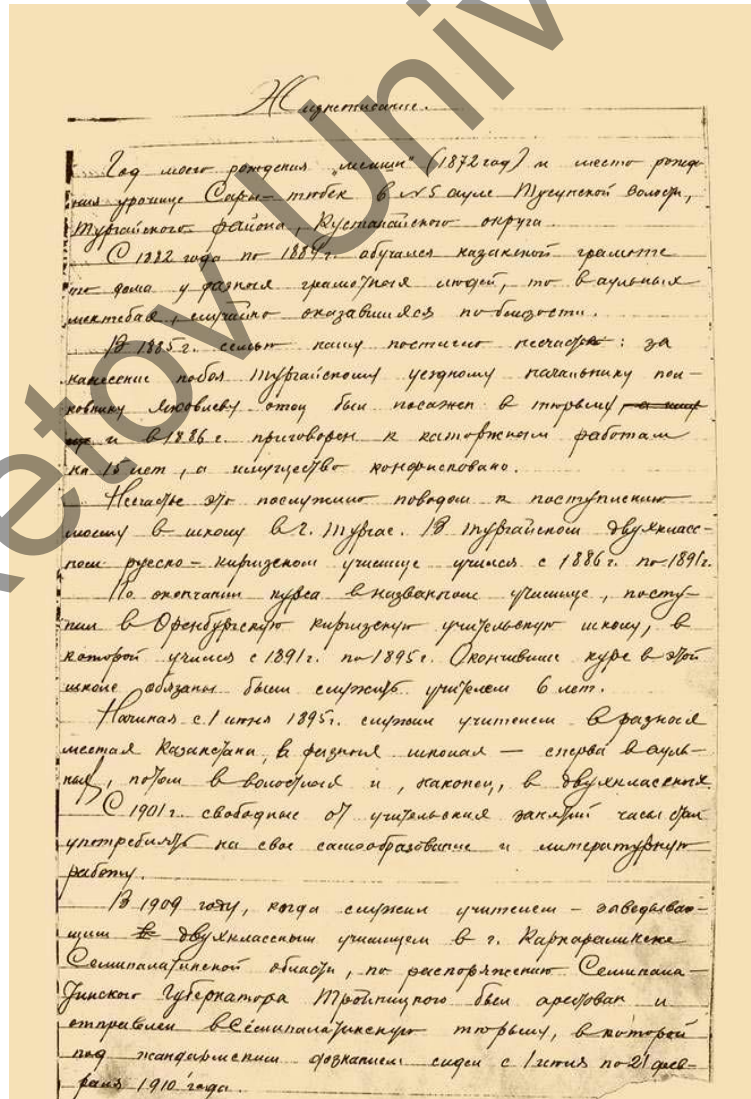 Жизнеописание.
Год моего рождения „мешин" (1872 год) и место рожде-
ния урочище Сары-тюбек в №5 ауле Тусунской волости,
Тургайского района, Кустанайского округа.
С 1882 года по 1884 г. обучался казакской грамоте
то дома у разных грамотных людей, то в аульных
мектебах, случайно оказавшихся поблизости.
В 1885 г. семью нашу постигло несчастье: за
нанесение побоя Тургайскому уездному начальнику пол-
ковнику Яковлеву отец был посажен в тюрьму
и в 1886 г. приговорен к каторжным работам
на 15 лет, а имущество конфисковано.
Несчастье это послужило поводом к поступлению
моему в школу в г. Тургае. В Тургайском двухкласс-
ном русско-киргизском училище учился с 1886 г. по 1891 г.
По окончании курса в названном училище, посту-
пил в Оренбургскую киргизскую учительскую школу, в
которой учился с 1891 г. по 1895 г. Окончившие курс в этой
школе обязаны были служить учителем 6 лет.
Начиная с 1 июня 1895 г. служил учителем в разных
местах Казакстана, в разных школах — сперва в ауль-
ных, потом в волостных и, наконец, в двухклассных.
С 1901 г. свободные от учительских занятий часы стал
употреблять на свое самообразование и литературную
работу.
В 1909 году, когда служил учителем-заведываю-
щим двухклассным училищем в г. Каркаралинске
Семипалатинской области, по распоряжению Семипала-
тинского Губернатора Тройницкого был арестован и
отправлен в Семипалатинскую тюрьму, в которой
под жандармским дознанием сидел с 1 июля по 21 фев-
раля 1910 года.
ketov Univ